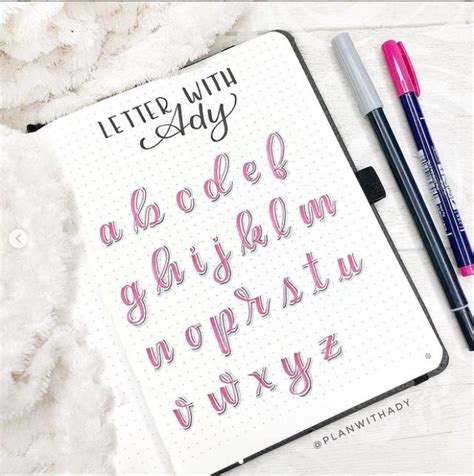 LETTER WITH
Ady
a b c d e f
g h i j k l m
n o p r s t u
v w x y z
@PLANWITHADY